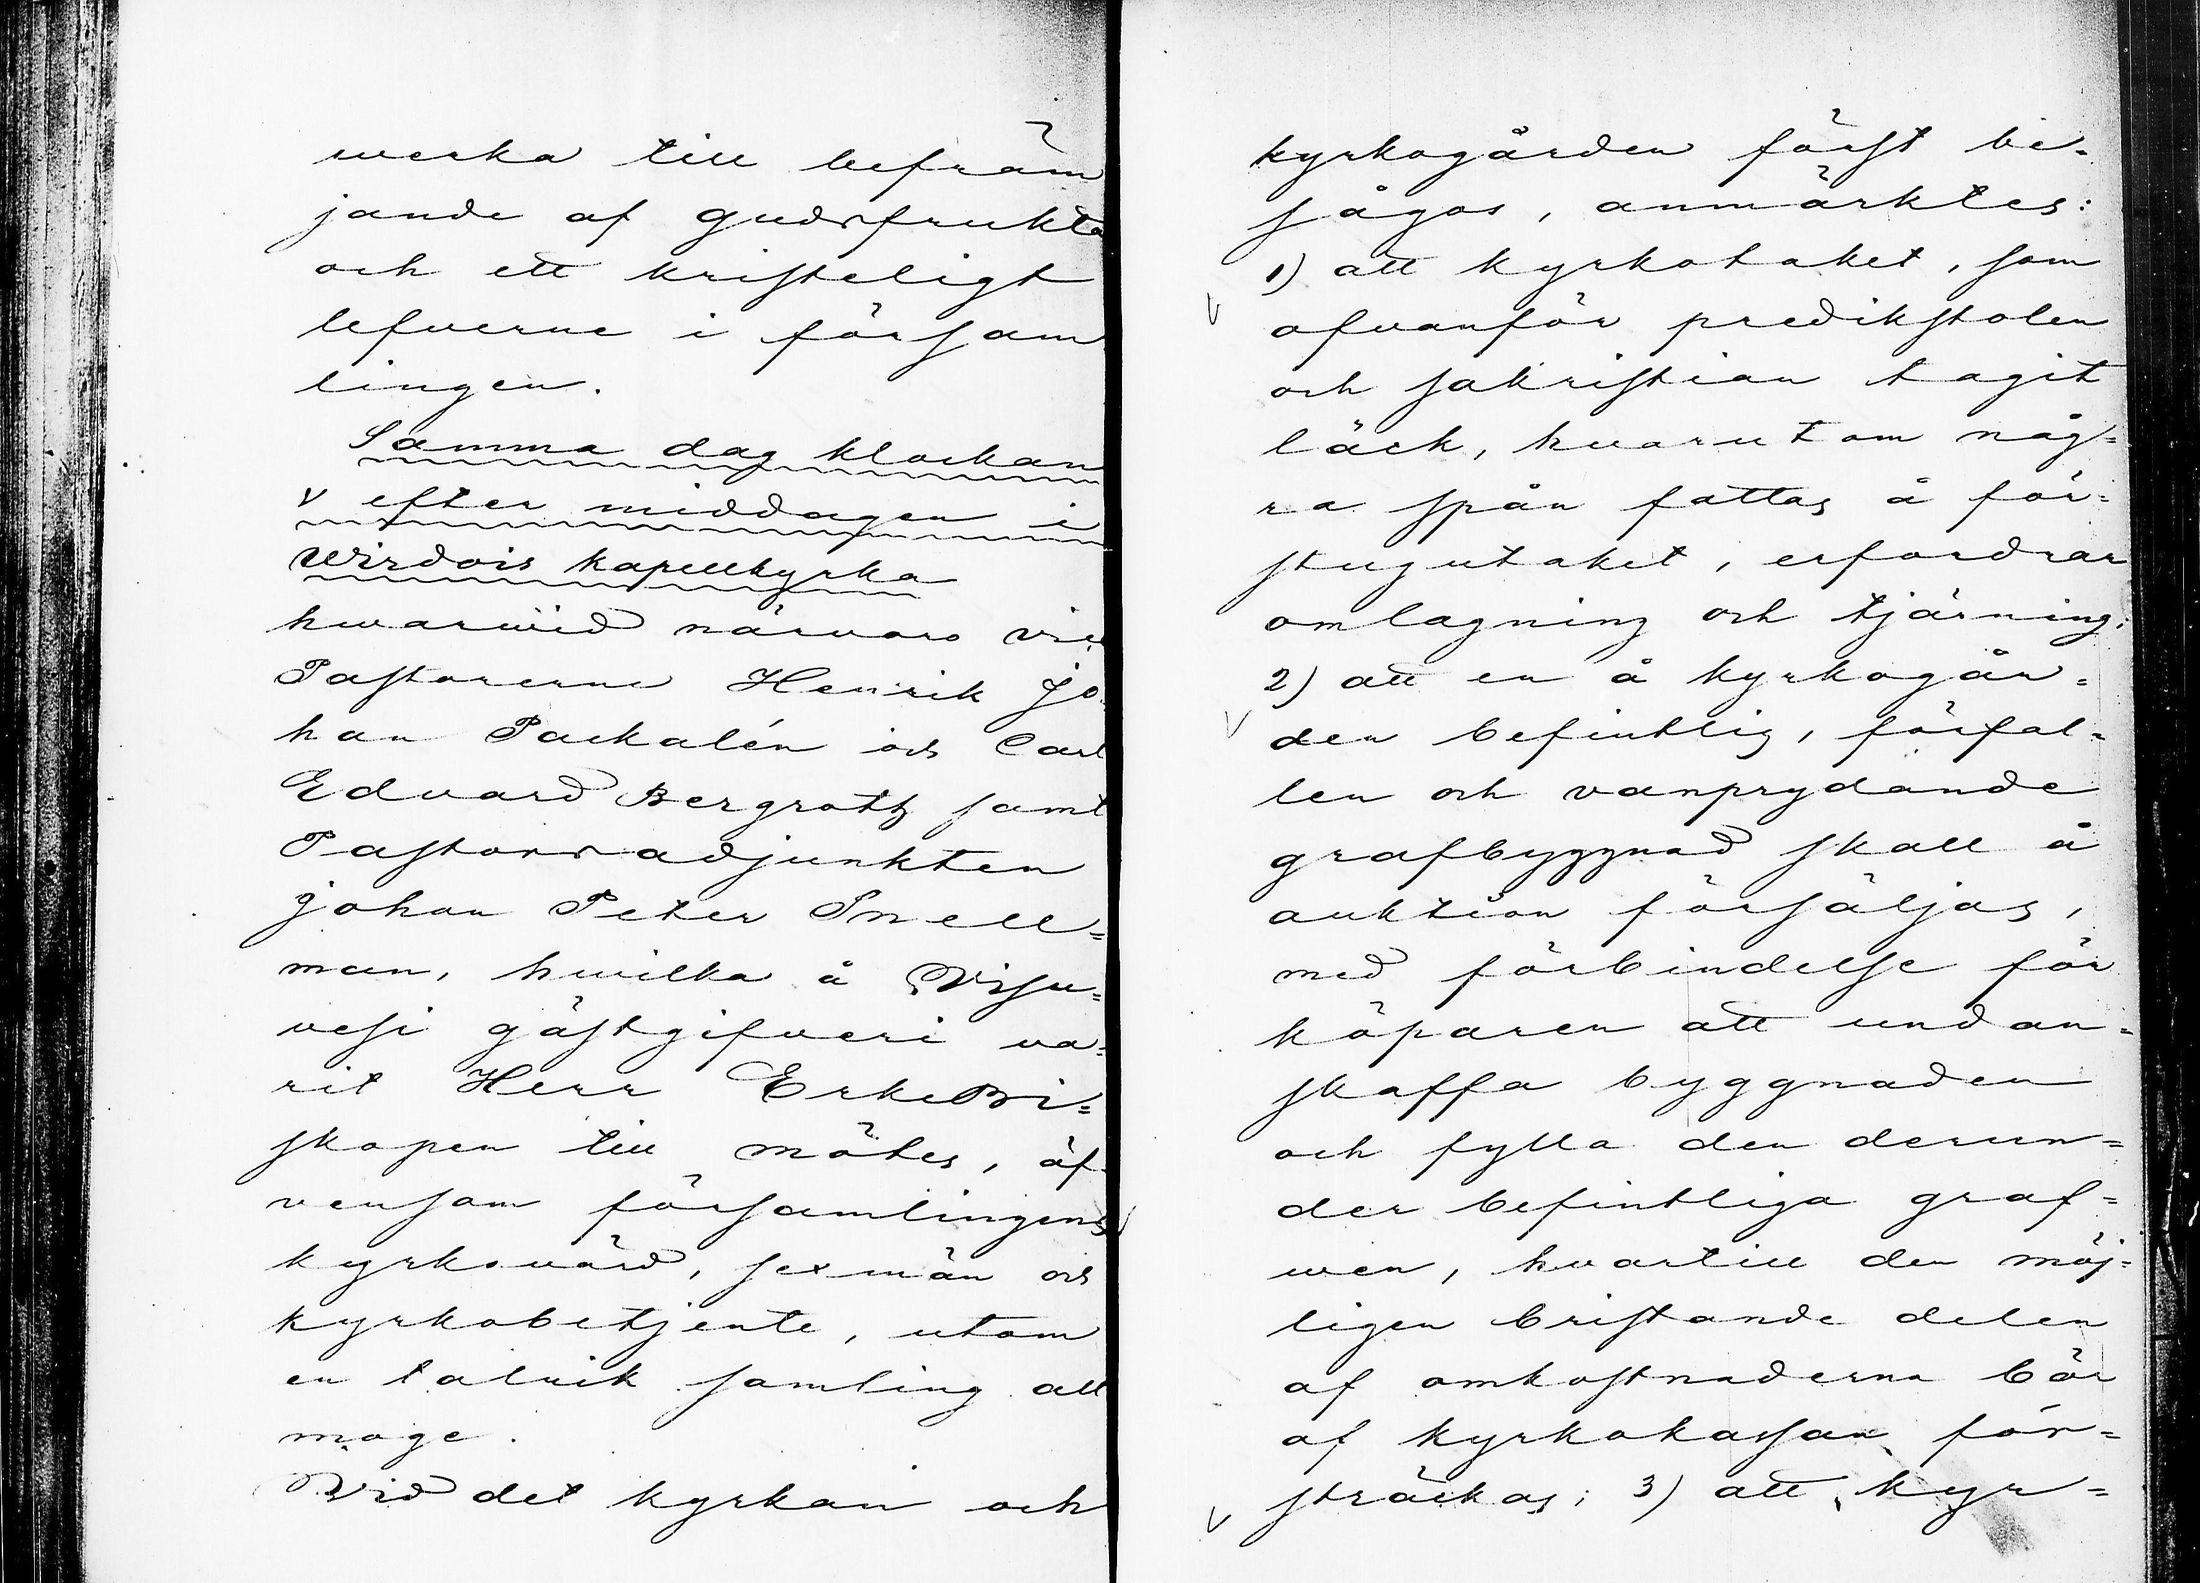 werka till befräm
jande af gudsfrukta
och ett kristeligt
lefverne i försam
lingen.
Samma dag klockan
V efter middagen i
Wirdois kapellkyrka
hwarwid närvaro vice
Pastorerne Henrik Jo
han Packalén och Carl
Edvard Bergroth samt
Pastorsadjunkten
Johan Peter Snell=
man, hwilka å Visu=
vesi gästgifveri va=
rit Herr ErkeBi=
skopen till mötes, äf
vensom församlingens
kyrkovärd, sexmän och
kyrkobetjente, utom
en talrik samling all
moge.
Vid det kyrkan och
kyrkogården först be=
sågos, anmärktes:
1) att kyrkotaket, som
ofvanför predikstolen
och sakristian tagit
läck, hvarutom någ=
ra spån fattas å för=
stugutaket, erfordrar
omlagning och tjärning;
2) att en å kyrkogår=
den befintlig, förfal=
len och vanprydande
grafbyggnad skall å
auktion försäljas,
med förbindelse för
köparen att undan=
skaffa byggnaden
och fylla den derun=
der befintliga graf=
wen, hvartill den möj=
ligen bristande delen
af omkostnaderna bör
af kyrkokassan för=
sträckas; 3) att kyr=